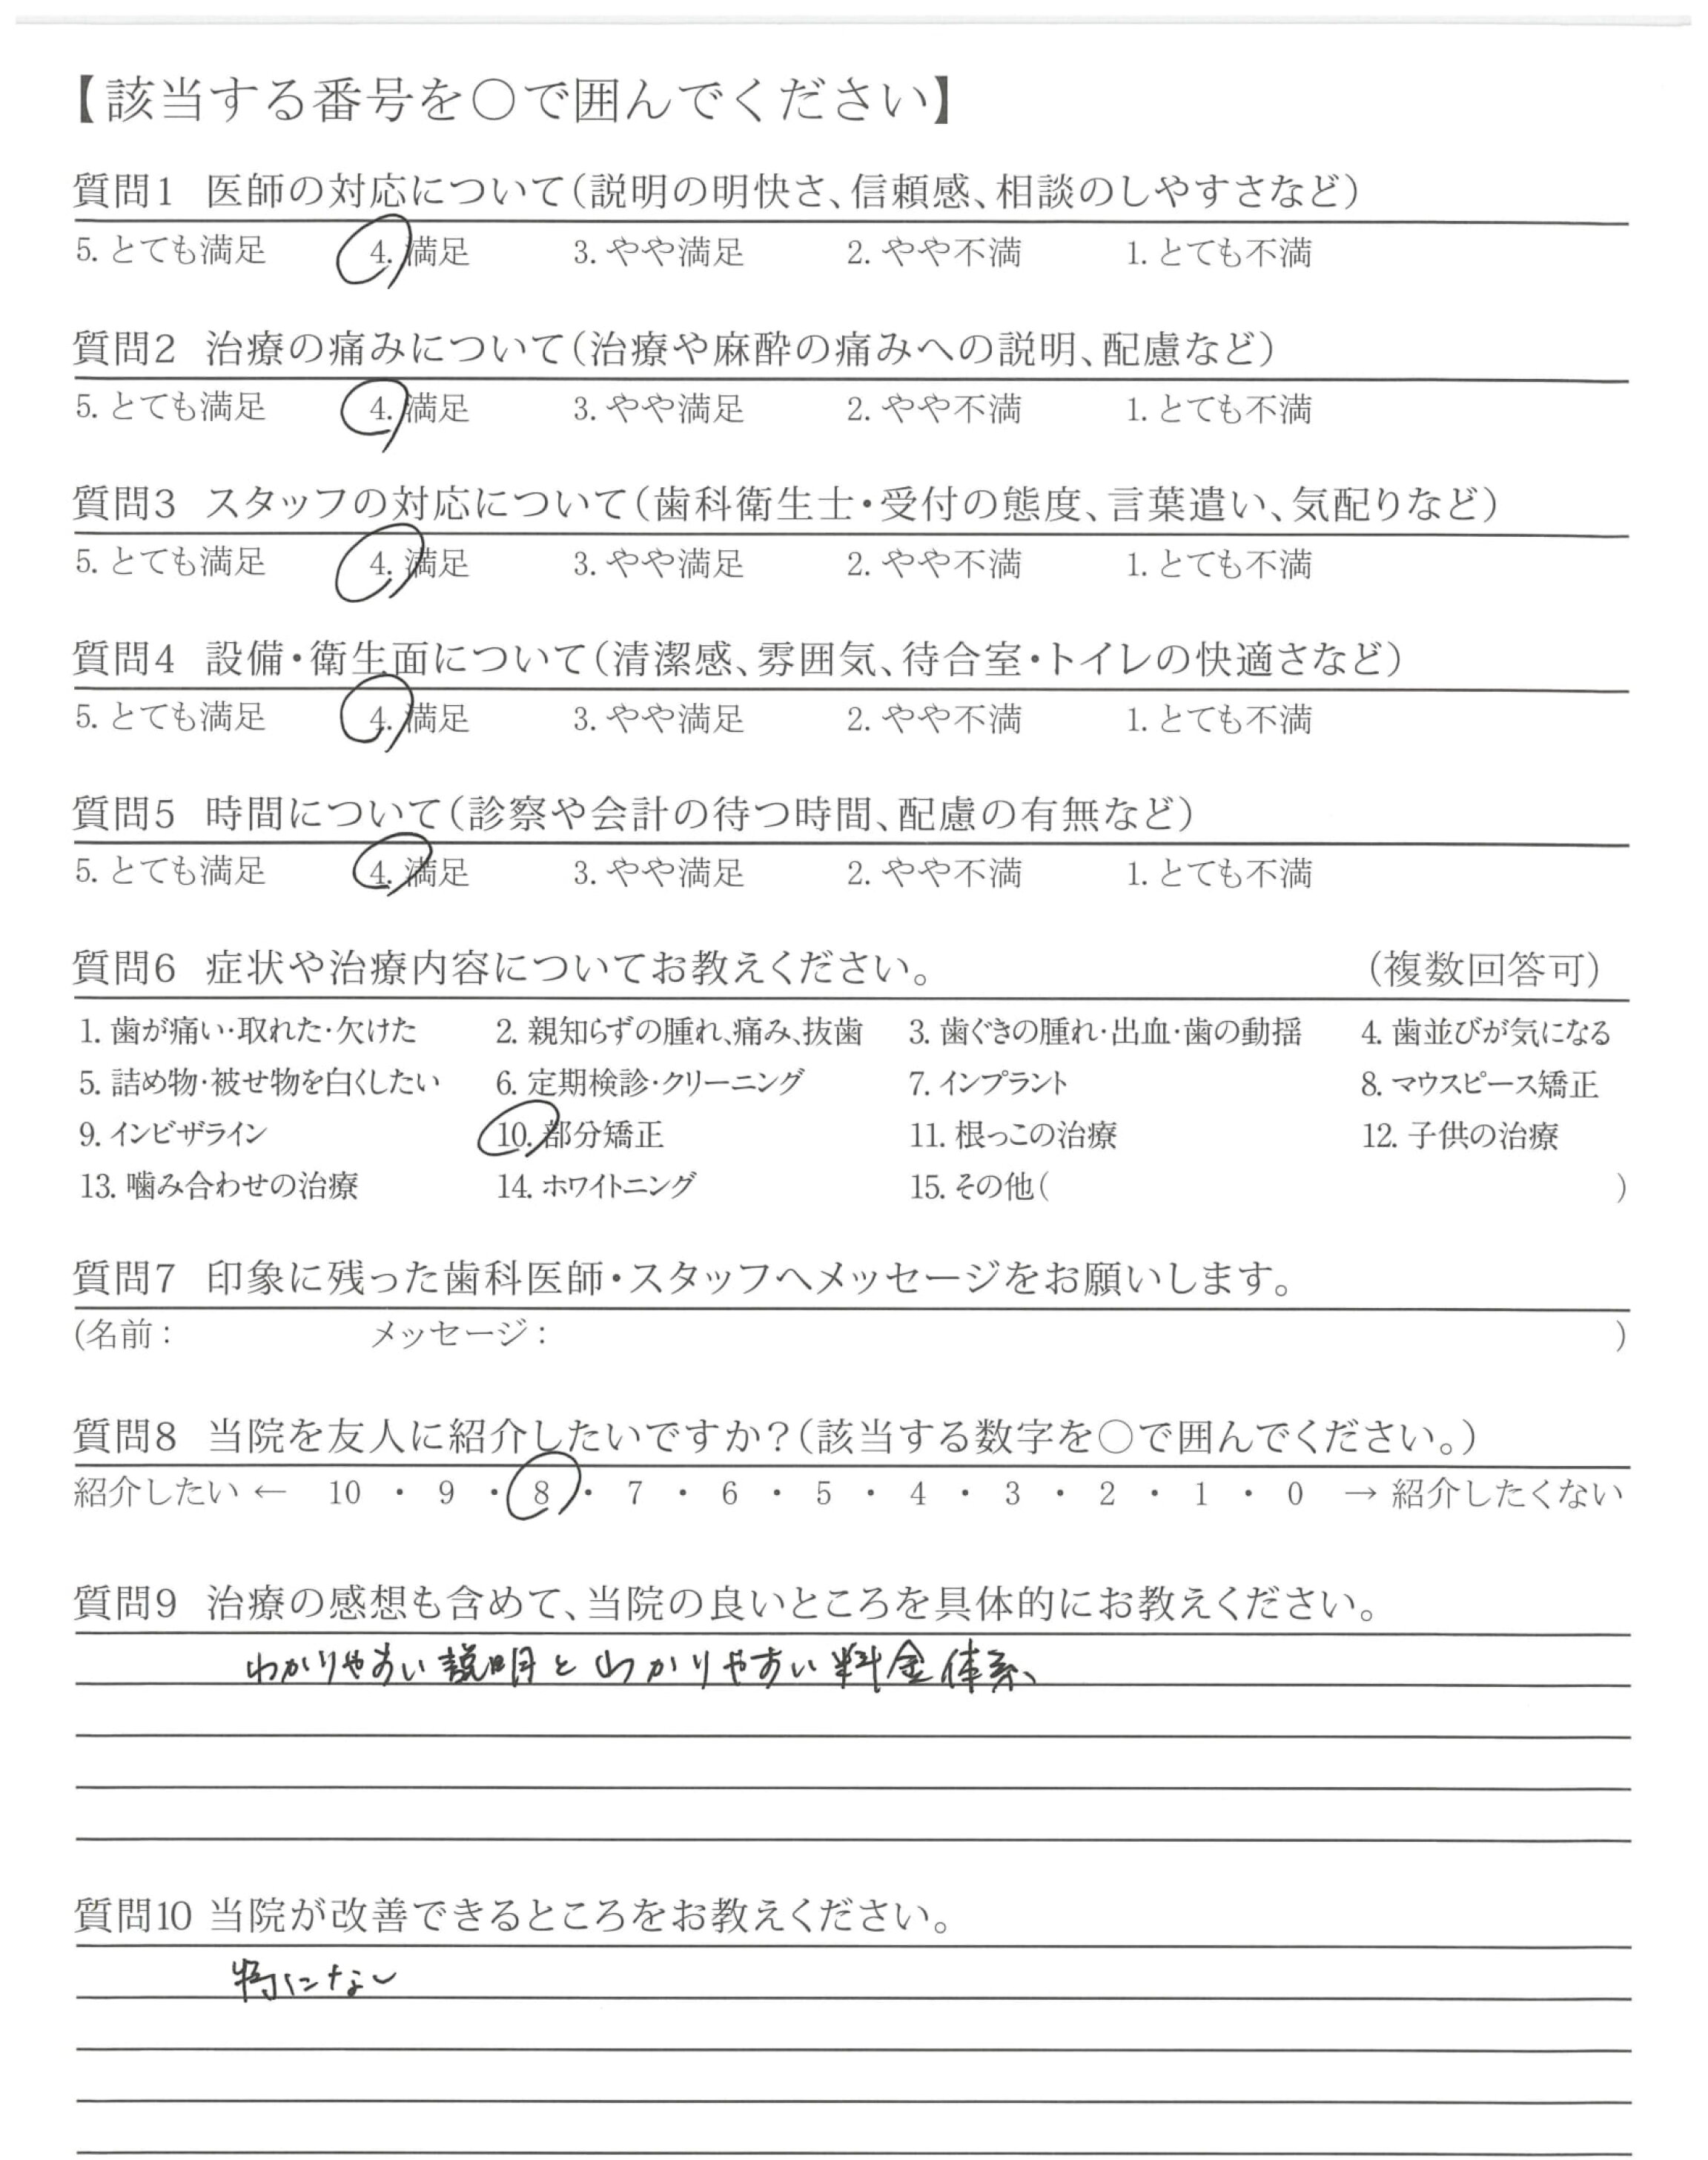 【該当する番号を○で囲んでください】
質問1 医師の対応について(説明の明快さ、信頼感、相談のしやすさなど)
5. とても満足 4. 満足 3. やや満足 2. やや不満 1. とても不満
質問2 治療の痛みについて(治療や麻酔の痛みへの説明、配慮など)
5. とても満足 4. 満足 3. やや満足 2. やや不満 1. とても不満
質問3 スタッフの対応について(歯科衛生士・受付の態度、言葉遣い、気配りなど)
5. とても満足 4. 満足 3. やや満足 2. やや不満 1. とても不満
質問4 設備・衛生面について(清潔感、雰囲気、待合室・トイレの快適さなど)
5. とても満足 4. 満足 3. やや満足 2. やや不満 1. とても不満
質問5 時間について(診察や会計の待つ時間、配慮の有無など)
5. とても満足 4. 満足 3. やや満足 2. やや不満 1. とても不満
質問6 症状や治療内容についてお教えください。 (複数回答可)
1. 歯が痛い・取れた・欠けた 2. 親知らずの腫れ、痛み、抜歯 3. 歯ぐきの腫れ・出血・歯の動揺 4. 歯並びが気になる
5. 詰め物・被せ物を白くしたい 6. 定期検診・クリーニング 7. インプラント 8. マウスピース矯正
9. インビザライン 10. 部分矯正 11. 根っこの治療 12. 子供の治療
13. 噛み合わせの治療 14. ホワイトニング 15. その他( )
質問7 印象に残った歯科医師・スタッフへメッセージをお願いします。
(名前: メッセージ: )
質問8 当院を友人に紹介したいですか?(該当する数字を○で囲んでください。)
紹介したい ← 10 ・ 9 ・ 8 ・ 7 ・ 6 ・ 5 ・ 4 ・ 3 ・ 2 ・ 1 ・ 0 → 紹介したくない
質問9 治療の感想も含めて、当院の良いところを具体的にお教えください。
わかりやすい説明とわかりやすい料金体系、
質問10 当院が改善できるところをお教えください。
特になし